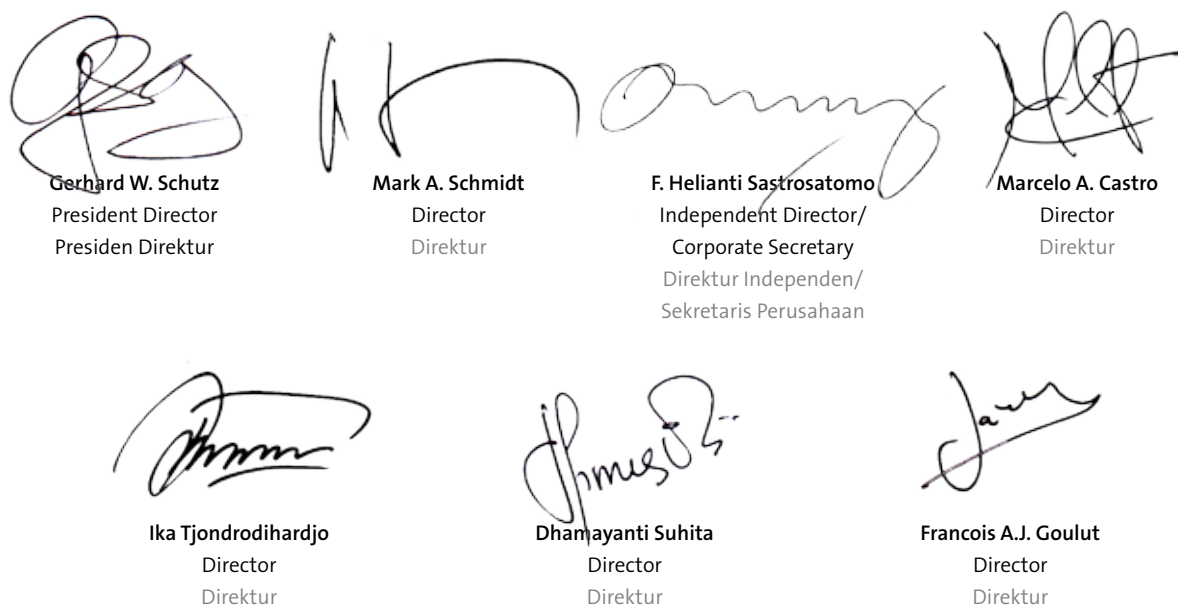 Gerhard W. Schutz
President Director
Presiden Direktur
Mark A. Schmidt
Director
Direktur
F. Helianti Sastrosatomo
Independent Director/
Corporate Secretary
Direktur Independen/
Sekretaris Perusahaan
Marcelo A. Castro
Director
Direktur
Ika Tjondrodihardjo
Director
Direktur
Dhamayanti Suhita
Director
Direktur
Francois A.J. Goulut
Director
Direktur